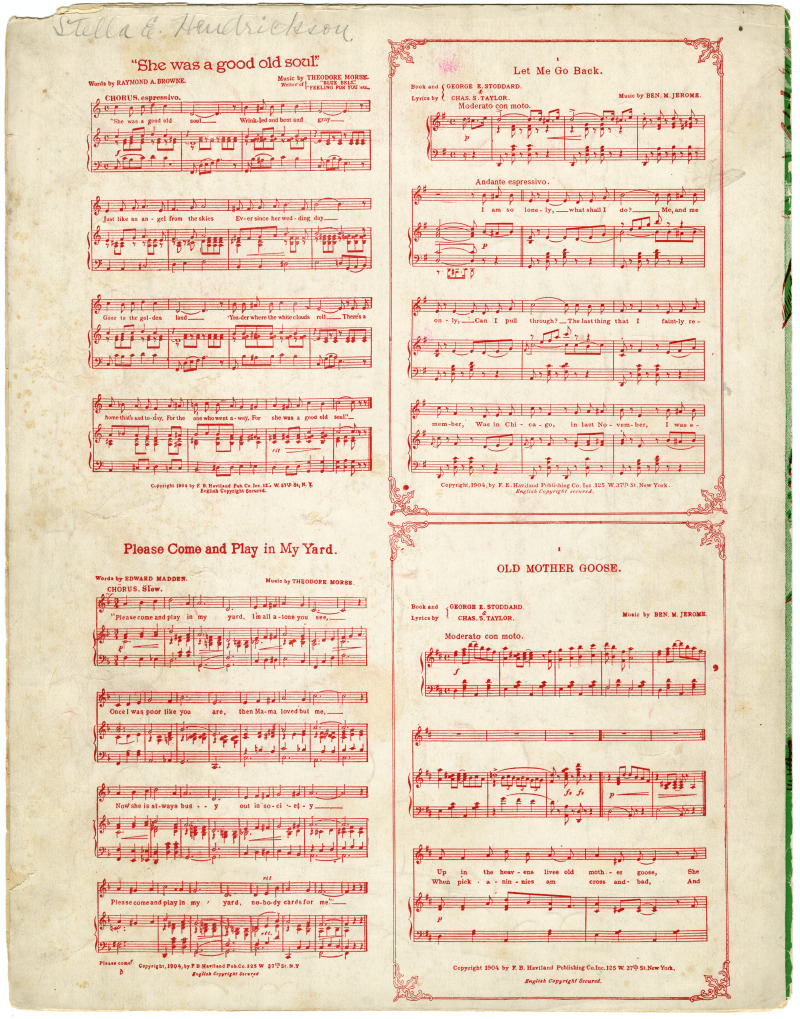 Stella E. Hendrickson
"She was a good old soul."
Words by RAYMOND A. BROWNE.
Music by THEODORE MORSE.
Writer of { "BLUE BELL"
"FEELING FOR YOU"
CHORUS. espressivo.
"She was a good old soul Wrink-led and bent and gray
Just like an an-gel from the skies Ev-er since her wed-ding day
Goes to the gol-den land 'Yon-der where the white clouds roll There's a
home that's sad to-day, For the one who went a-way, For she was a good old soul."
rit
Copyright 1904 by F. B. Haviland Pub. Co. Inc. 125 W. 37th St, N. Y.
English Copyright Secured.
Please Come and Play in My Yard.
Words by EDWARD MADDEN.
Music by THEODORE MORSE.
CHORUS. Slow.
"Please come and play in my yard, I'm all a-lone you see,
p
Once I was poor like you are, then Ma-ma loved but me,
Now she is al-ways bus - y out in so-ci-e-ty
rit
Please come and play in my yard, no-bo-dy cards for me"
rit.
Please come
Copyright, 1904, by F. B Haviland Pub. Co. 125 W 37th St. N.Y
English Copyright Secured
1
Let Me Go Back.
Book and Lyrics by { GEORGE E. STODDARD. & CHAS. S. TAYLOR.
Music by BEN. M. JEROME.
Moderato con moto.
f
Andante espressivo.
I am so lone-ly, what shall I do? Me, and me
p
on-ly, Can I pull through? The last thing that I faint-ly re-
mem-ber, Was in Chi-ca-go, in last No-vem-ber, I was e-
Copyright, 1904, by F. E. Haviland Publishing Co. Inc. 125 W. 37th St. New York.
English Copyright secured.
1
OLD MOTHER GOOSE.
Book and Lyrics by { GEORGE E. STODDARD. & CHAS. S. TAYLOR.
Music by BEN. M. JEROME.
Moderato con moto.
f
p
Up in the heav-ens lives old moth-er goose, She
When pick-a-nin-nies am cross and bad, And
p
Copyright 1904 by F. B. Haviland Publishing Co. Inc. 125 W. 37th St. New York.
English Copyright Secured.